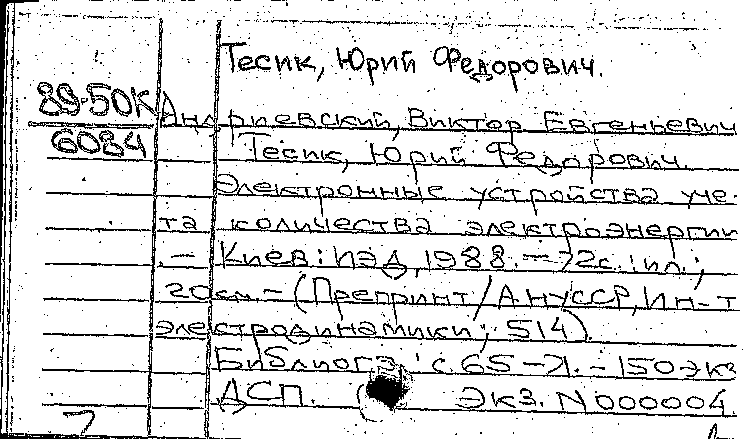 Тесик, Юрий Федорович.
89-50К Андриевский, Виктор Евгеньевич
6084 Тесик, Юрий Федорович.
Электронные устройства уче-
та количества электроэнергии
.— Киев: ИЭД, 1988.— 72с.: ил.;
20см.— (Препринт/АНУССР, Ин-т
электродинамики; 514).
Библиогр.: с. 65-71.— 150экз
ДСП. Экз. N000004.